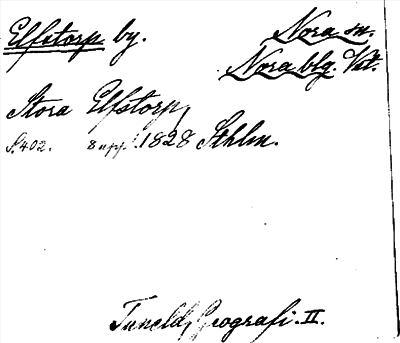 Elfstorp by.
Nora sn.
Nora blg. Vstm.
Stora Elfstorp,
S. 402. 8 uppl. 1828 Sthlm.
Tuneld, Geografi. II.